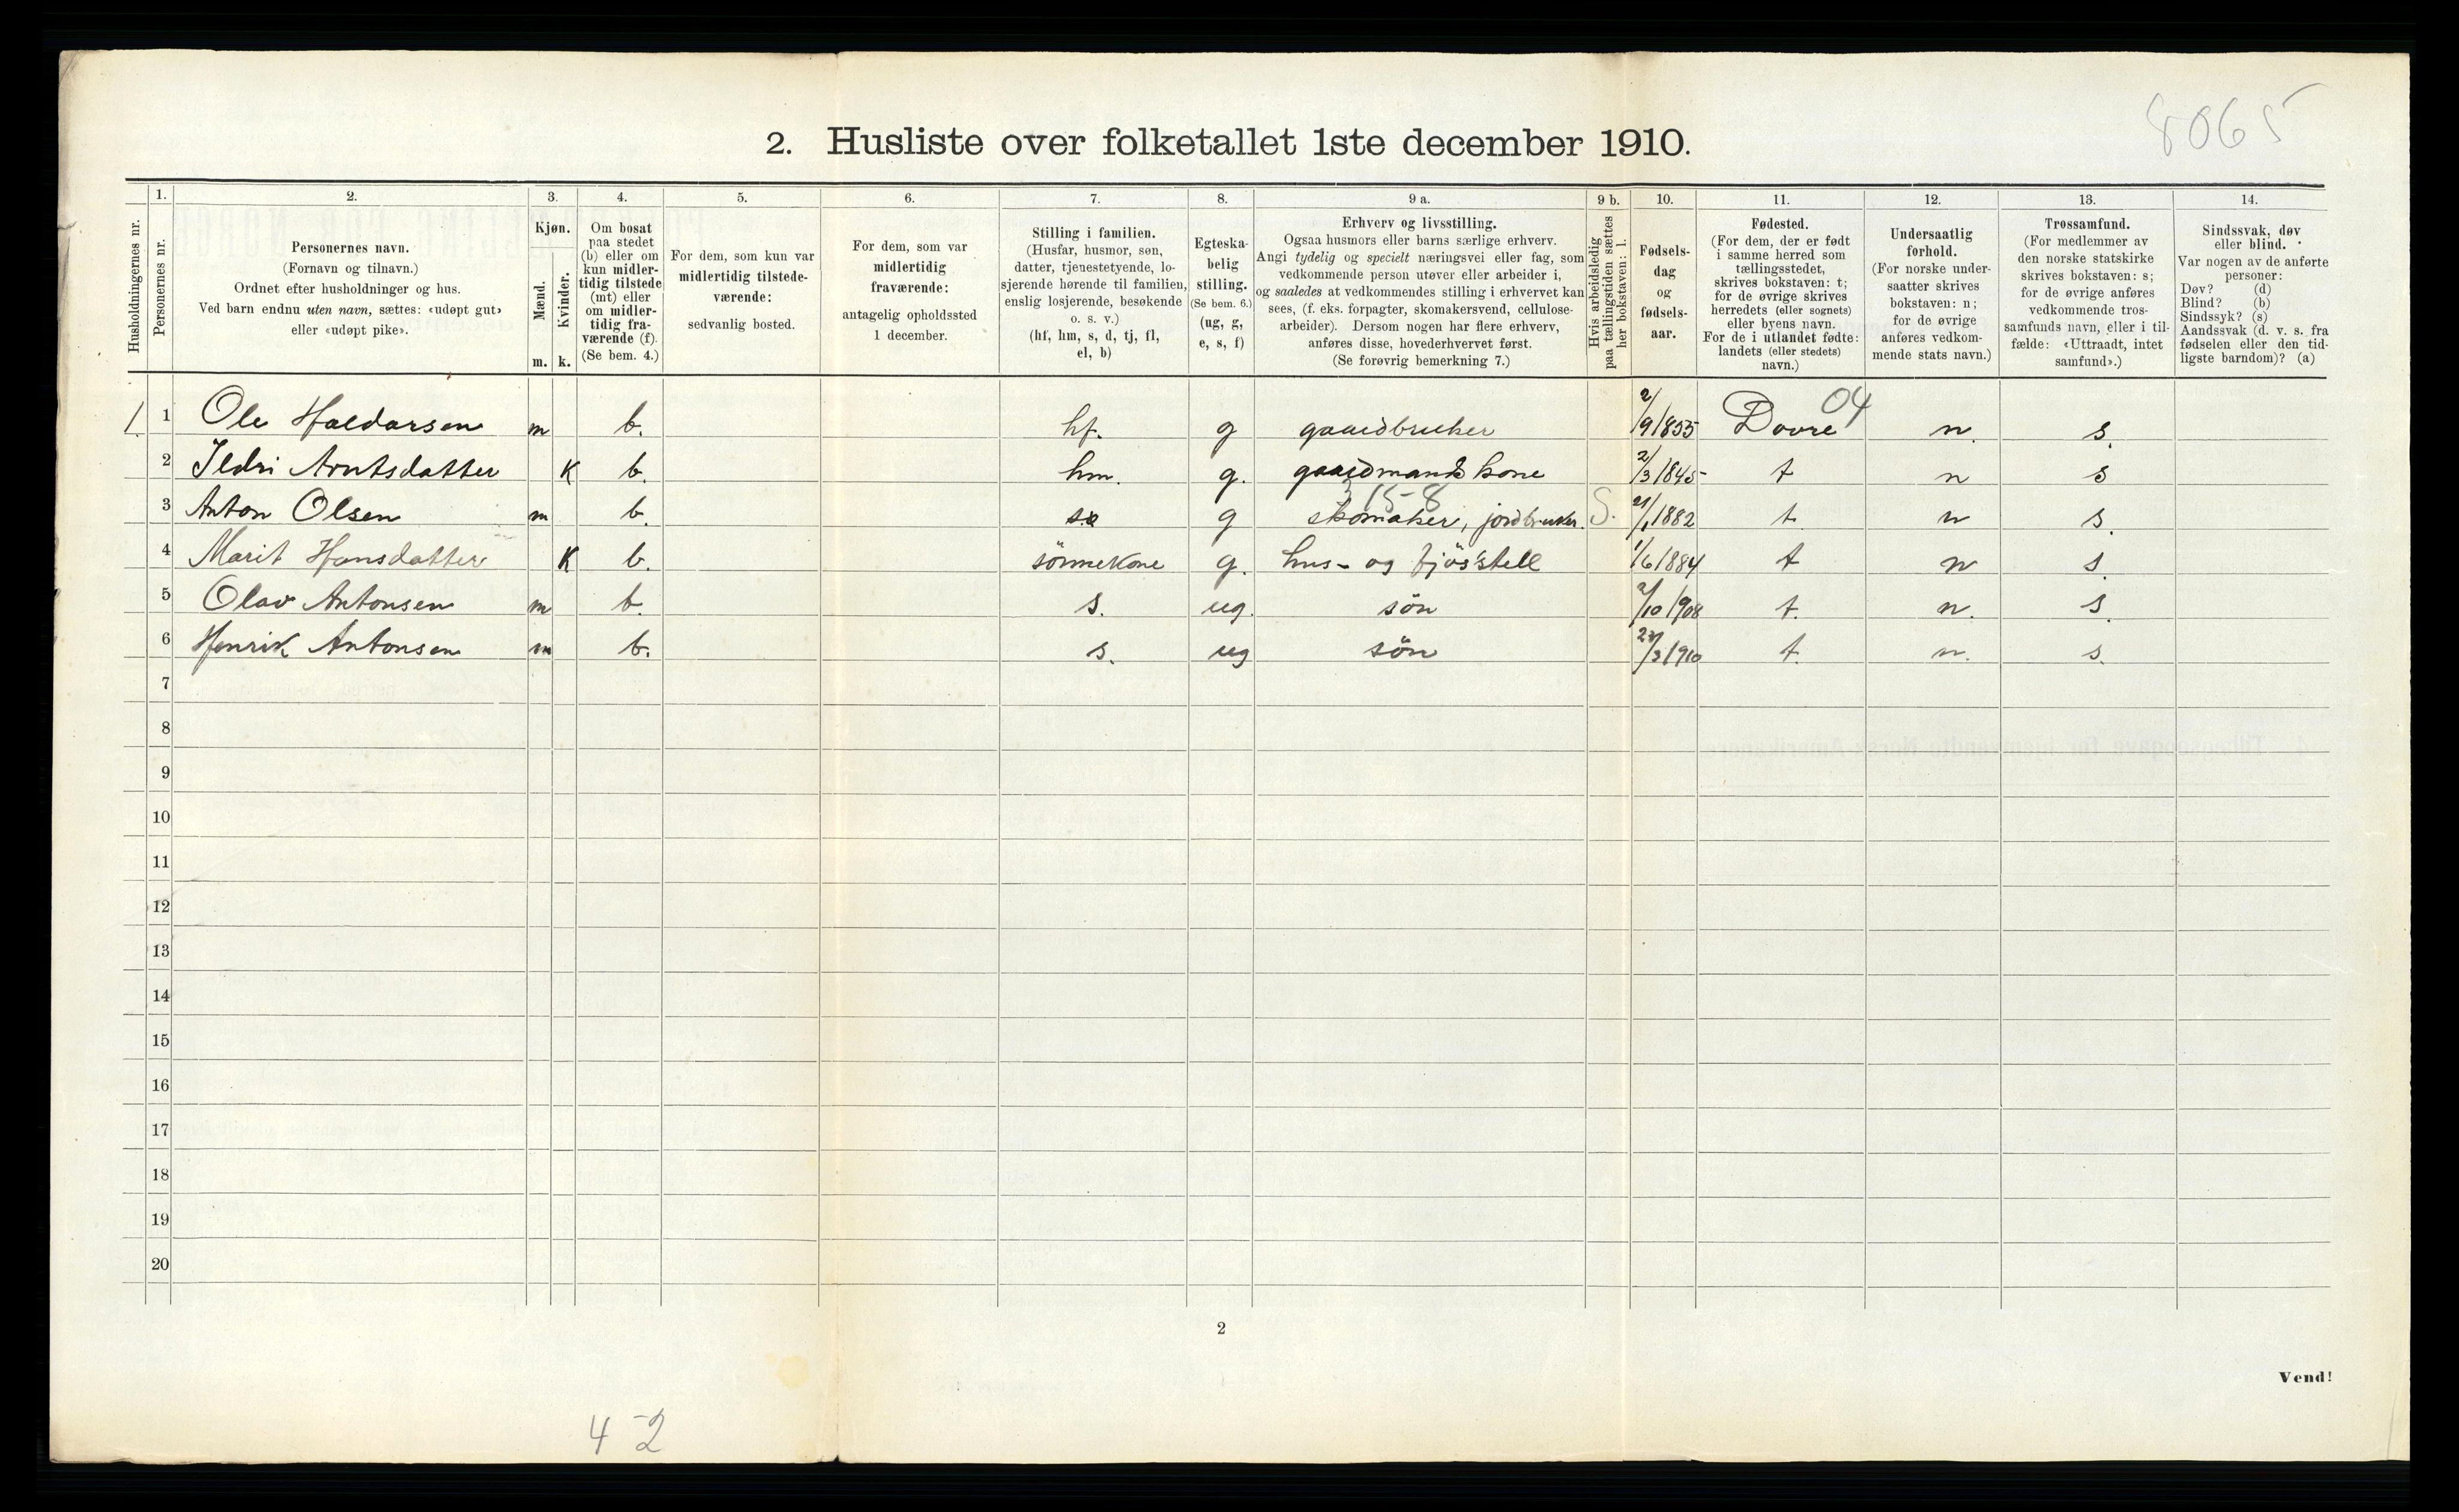 8065
2. Husliste over folketallet 1ste december 1910.
Husholdningernes nr.
1.
Personernes nr.
2.
Personernes navn.
(Fornavn og tilnavn.)
Ordnet efter husholdninger og hus.
Ved barn endnu uten navn, sættes: «udøpt gut»
eller «udøpt pike».
3.
Kjøn.
Mænd.
Kvinder.
m. k.
4.
Om bosat
paa stedet
(b) eller om
kun midler-
tidig tilstede
(mt) eller
om midler-
tidig fra-
værende (f).
(Se bem. 4.)
5.
For dem, som kun var
midlertidig tilstede-
værende:
sedvanlig bosted.
6.
For dem, som var
midlertidig
fraværende:
antagelig opholdssted
1 december.
7.
Stilling i familien.
(Husfar, husmor, søn,
datter, tjenestetyende, lo-
sjerende hørende til familien,
enslig losjerende, besøkende
o. s. v.)
(hf, hm, s, d, tj, fl,
el, b)
8.
Egteska-
belig
stilling.
(Se bem. 6.)
(ug, g,
e, s, f)
9 a.
Erhverv og livsstilling.
Ogsaa husmors eller barns særlige erhverv.
Angi tydelig og specielt næringsvei eller fag, som
vedkommende person utøver eller arbeider i,
og saaledes at vedkommendes stilling i erhvervet kan
sees, (f. eks. forpagter, skomakersvend, cellulose-
arbeider). Dersom nogen har flere erhverv,
anføres disse, hovederhvervet først.
(Se forøvrig bemerkning 7.)
9 b.
Hvis arbeidsledig
paa tællingstiden sættes
her bokstaven: l.
10.
Fødsels-
dag
og
fødsels-
aar.
11.
Fødested.
(For dem, der er født
i samme herred som
tællingsstedet,
skrives bokstaven: t;
for de øvrige skrives
herredets (eller sognets)
eller byens navn.
For de i utlandet fødte:
landets (eller stedets)
navn.)
12.
Undersaatlig
forhold.
(For norske under-
saatter skrives
bokstaven: n;
for de øvrige
anføres vedkom-
mende stats navn.)
13.
Trossamfund.
(For medlemmer av
den norske statskirke
skrives bokstaven: s;
for de øvrige anføres
vedkommende tros-
samfunds navn, eller i til-
fælde: «Uttraadt, intet
samfund».)
14.
Sindssvak, døv
eller blind.
Var nogen av de anførte
personer:
Døv? (d)
Blind? (b)
Sindssyk? (s)
Aandssvak (d. v. s. fra
fødselen eller den tid-
ligste barndom)? (a)
1 1 Ole Haldorsen m b. hf. g gaardbruker 2/9 1855 Dovre 04 n. s.
2 Ildri Arntsdatter K b. hm. g. gaardmands kone 2/3 1845 t n s
3 Anton Olsen m b. g skomaker, jordbruker. 158 S. 21/1 1882 t n s.
4 Marit Hansdatter K b. sönnekone g. hus- og fjös'stell 1/6 1884 t n s.
5 Olav Antonsen m b. s. ug. sön /10 1908 t. n. s.
6 Henrik Antonsen m b. s. ug sön /3 1910 t. n. s.
7
8
9
10
11
12
13
14
15
16
17
18
19
20
2
Vend!
4-2